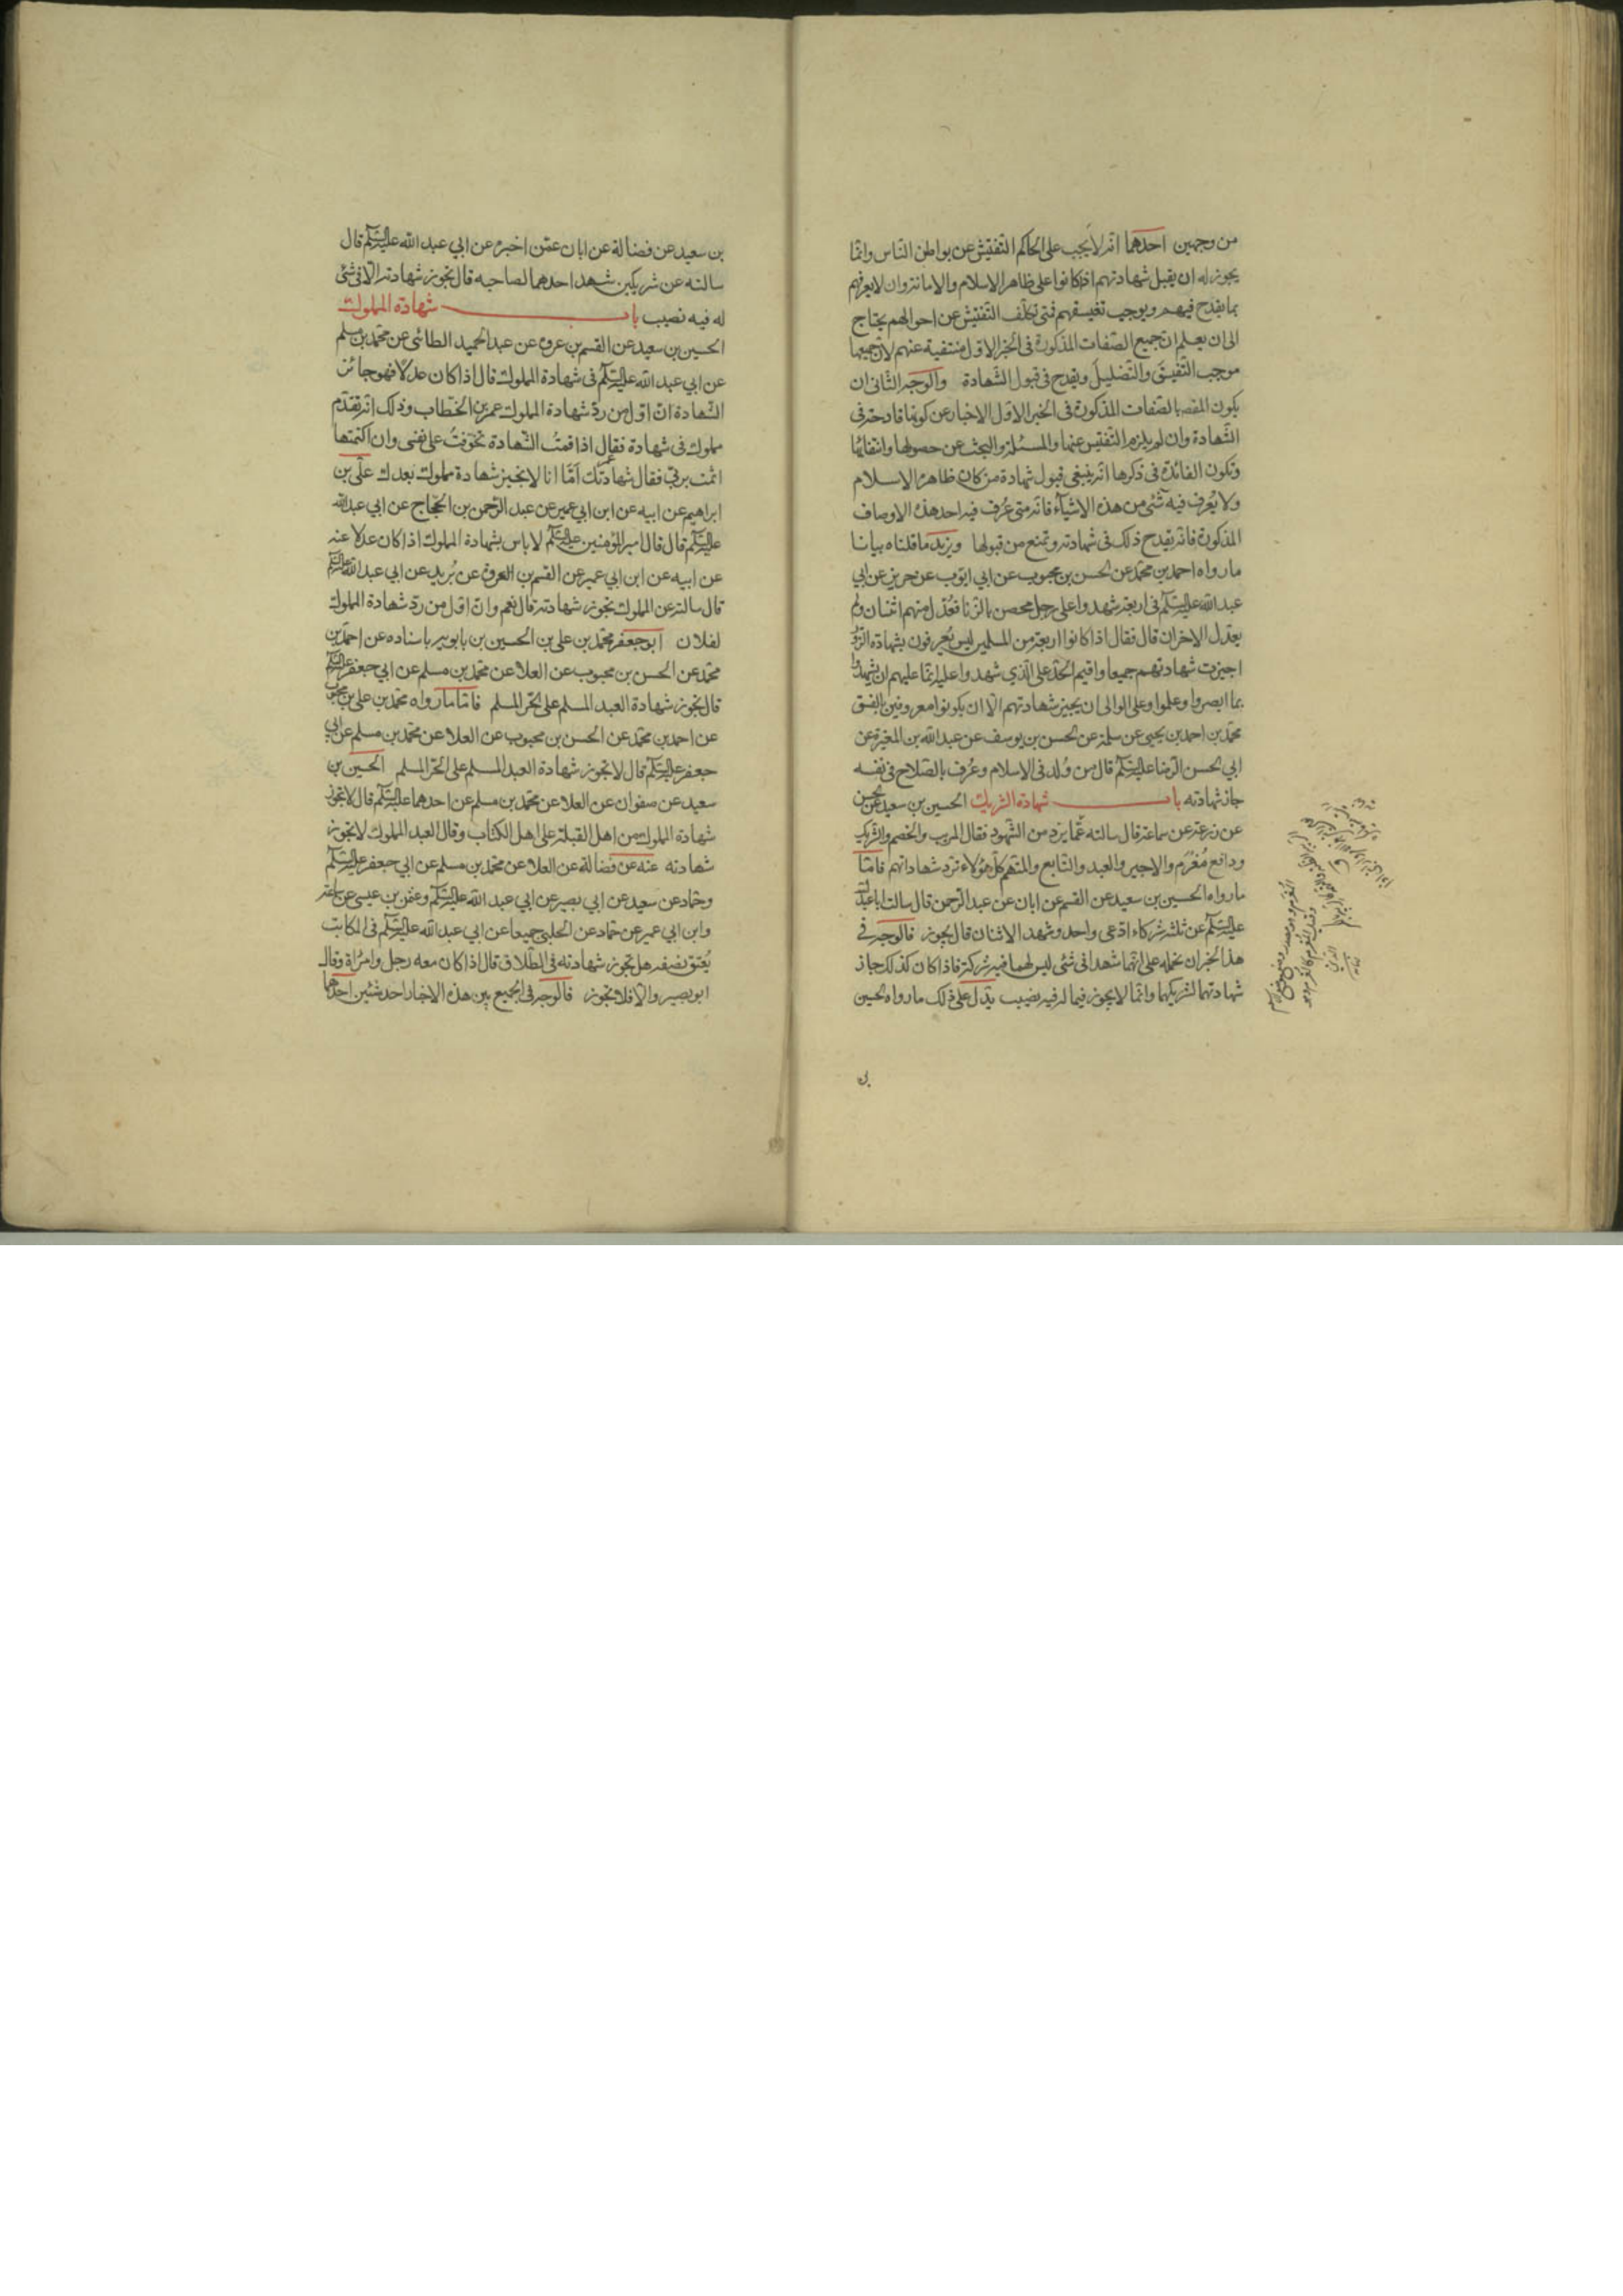 من وجهين احدهما انه لا يجب على الحاكم التفتيش عن بواطن الناس وانما
يجوز له ان يقبل شهادتهم اذا كانوا على ظاهر الاسلام والامانة وان لا يعرفهم
بما يقدح فيهم ويوجب تفسيقهم فمتى تكلف التفتيش عن احوالهم يحتاج
الى ان يعلم ان جميع الصفات المذكورة فى الخبر الاول منتفية عنهم لان جميعها
موجب التفسيق والتضليل ويقدح فى قبول الشهادة والوجه الثانى ان
يكون المقصد بالصفات المذكورة فى الخبر الاول الاخبار عن كونها قادحة فى
الشهادة وان لم يلزم التفتيش عنها والمسئلة والبحث عن حصولها وانتفائها
وتكون الفائدة فى ذكرها انه ينبغى قبول شهادة من كان ظاهره الاسلام
ولا يعرف فيه شئ من هذه الاشياء فانه متى عُرف فيه احد هذه الاوصاف
المذكورة فانه يقدح ذلك فى شهادته وتمنع من قبولها ويزيد ما قلناه بيانا
ما رواه احمد بن محمد عن الحسن بن محبوب عن ابي ايوب عن حريز عن ابي
عبد الله عليه السلم فى اربعة شهدوا على رجل محصن بالزنا فعُدّل منهم اثنان ولم
يعدّل الاخران قال فقال اذا كانوا اربعة من المسلمين ليس يُعرفون بشهادة الزور
اجيزت شهادتهم جميعا واقيم الحد على الذي شهدوا عليه انما عليهم ان يشهدوا
بما ابصروا وعلموا وعلى الوالى ان يجيز شهادتهم الا ان يكونوا معروفين بالفسق
محمد بن احمد بن يحيى عن سلمة عن الحسن بن يوسف عن عبد الله بن المغيرة عن
ابي الحسن الرضا عليه السلم قال من وُلد فى الاسلام وعُرف بالصلاح فى نفسه
جاز شهادته باب شهادة الشريك الحسين بن سعيد عن الحسن
عن زرعة عن سماعة قال سالته عما يرد من الشهود فقال المريب والخصم والشريك
ودافع مُغرَم والاجير والعبد والتابع والمتهم كل هؤلاء ترد شهاداتهم فاما
ما رواه الحسين بن سعيد عن القسم عن ابان عن عبد الرحمن قال سالت ابا عبد الله
عليه السلم عن ثلثة شركاء ادعى واحد وشهد الاثنان قال يجوز فالوجه فى
هذا الخبر ان نحمله على انهما شهدا فى شئ ليس لهما فيه شركة فاذا كان كذلك جاز
شهادتهما لشريكهما وانما لا يجوز فيما له فيه نصيب يدل على ذلك ما رواه الحسين
بن سعيد عن فضالة عن ابان عمن اخبره عن ابي عبد الله عليه السلم قال
سالته عن شريكين شهد احدهما لصاحبه قال تجوز شهادته الا فى شئ
له فيه نصيب باب شهادة المملوك
الحسين بن سعيد عن القسم بن عروة عن عبد الحميد الطائى عن محمد بن مسلم
عن ابي عبد الله عليه السلم فى شهادة المملوك قال اذا كان عدلا فهو جائز
الشهادة ان اول من ردّ شهادة المملوك عمر بن الخطاب وذلك انه تقدم
مملوك فى شهادة فقال اذا قمتُ الشهادة تخوفتُ على نفسى وان اكتمتها
اثمت بربي فقال شهادتك اما انا لا نجيز شهادة مملوك بعدك على بن
ابراهيم عن ابيه عن ابن ابي عمير عن عبد الرحمن بن الحجاج عن ابي عبد الله
عليه السلم قال قال امير المؤمنين عليه السلم لا باس بشهادة المملوك اذا كان عدلا عنه
عن ابيه عن ابن ابي عمير عن القسم بن العروة عن بُريد عن ابي عبد الله عليه السلم
قال سالته عن المملوك تجوز شهادته قال نعم وان اول من ردّ شهادة المملوك
لفلان ابو جعفر محمد بن على بن الحسين بن بابويه باسناده عن احمد بن
محمد عن الحسن بن محبوب عن العلا عن محمد بن مسلم عن ابي جعفر عليه السلم
قال تجوز شهادة العبد المسلم على الحر المسلم فاما ما رواه محمد بن على بن محبوب
عن احمد بن محمد عن الحسن بن محبوب عن العلا عن محمد بن مسلم عن ابي
جعفر عليه السلم قال لا تجوز شهادة العبد المسلم على الحر المسلم الحسين بن
سعيد عن صفوان عن العلا عن محمد بن مسلم عن احدهما عليه السلم قال لا تجوز
شهادة المملوك من اهل القبلة على اهل الكتاب وقال العبد المملوك لا تجوز
شهادته عنه عن فضالة عن العلا عن محمد بن مسلم عن ابي جعفر عليه السلم
وحماد عن سعيد عن ابي بصير عن ابي عبد الله عليه السلم وعثمن بن عيسى عن سماعة
وابن ابي عمير عن حماد عن الحلبي جميعا عن ابي عبد الله عليه السلم فى المكاتب
يُعتق نصفه هل تجوز شهادته فى الطلاق قال اذا كان معه رجل وامراة وقال
ابو بصير والا فلا تجوز فالوجه فى الجمع بين هذه الاخبار احد شيئين احدهما